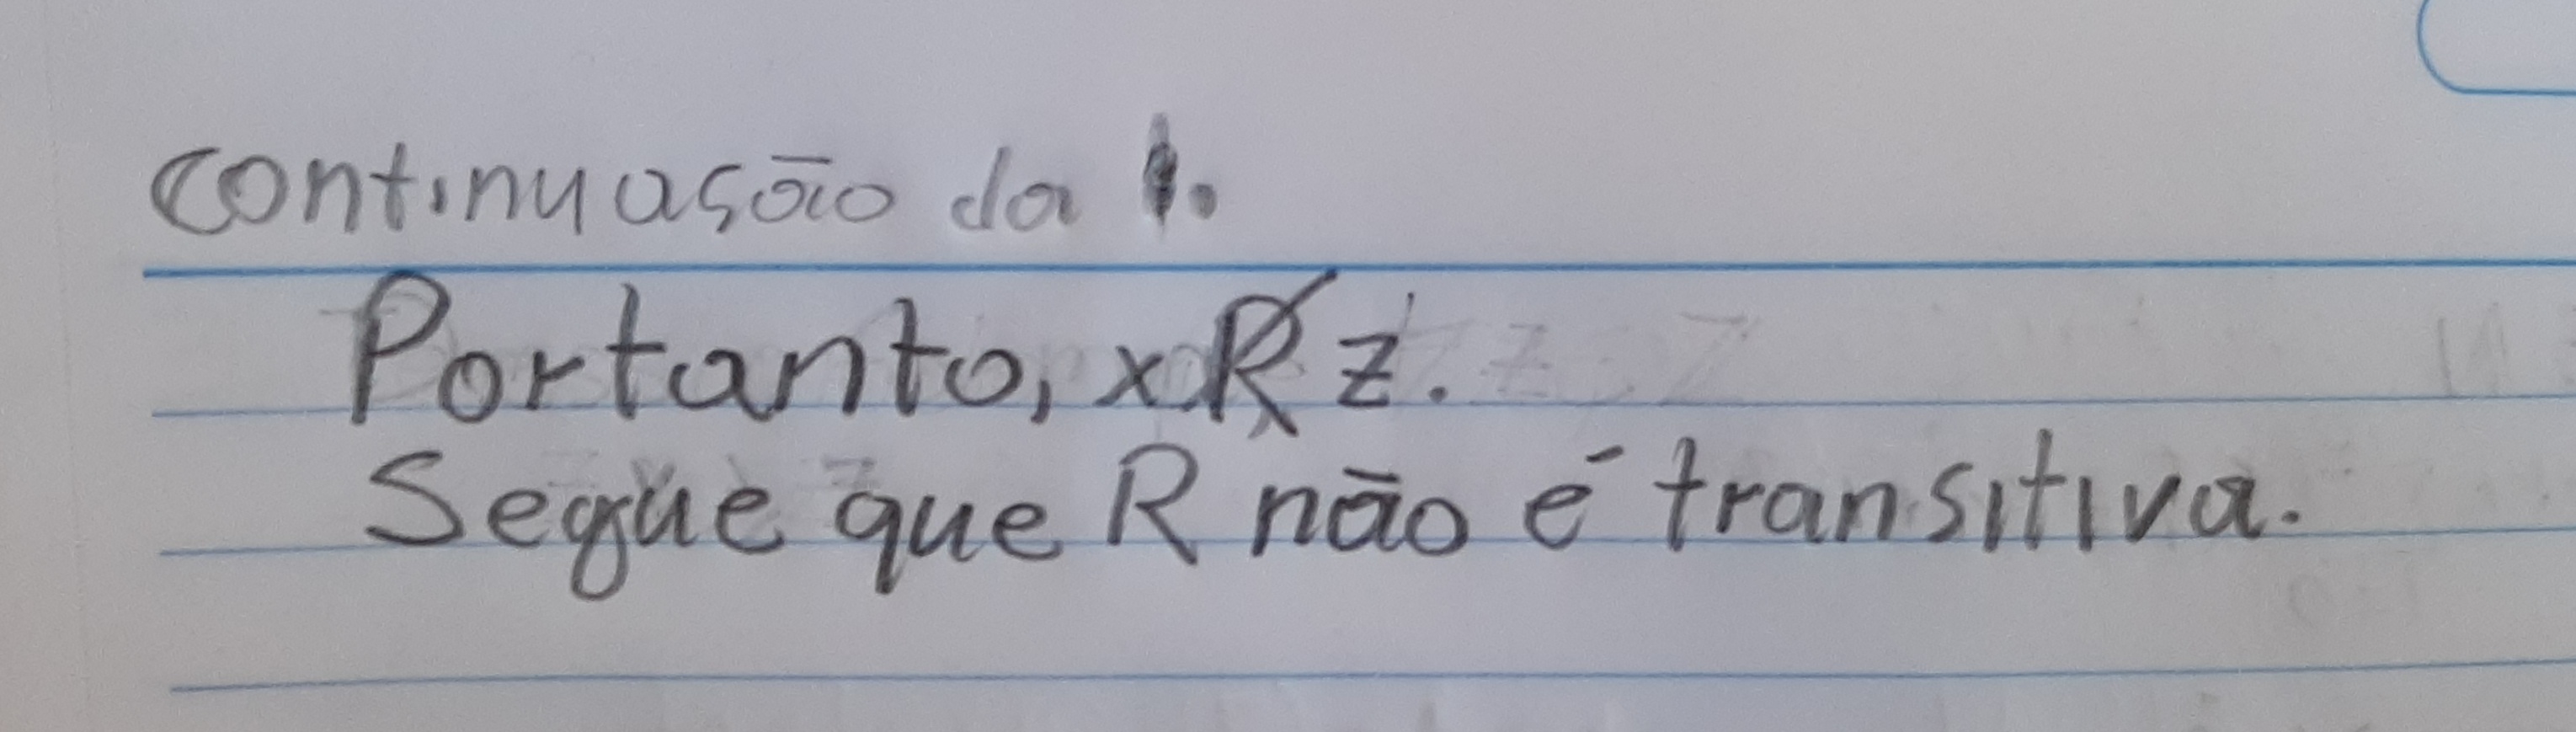 continuação da 1.
Portanto, x R̸ z.
Segue que R não é transitiva.